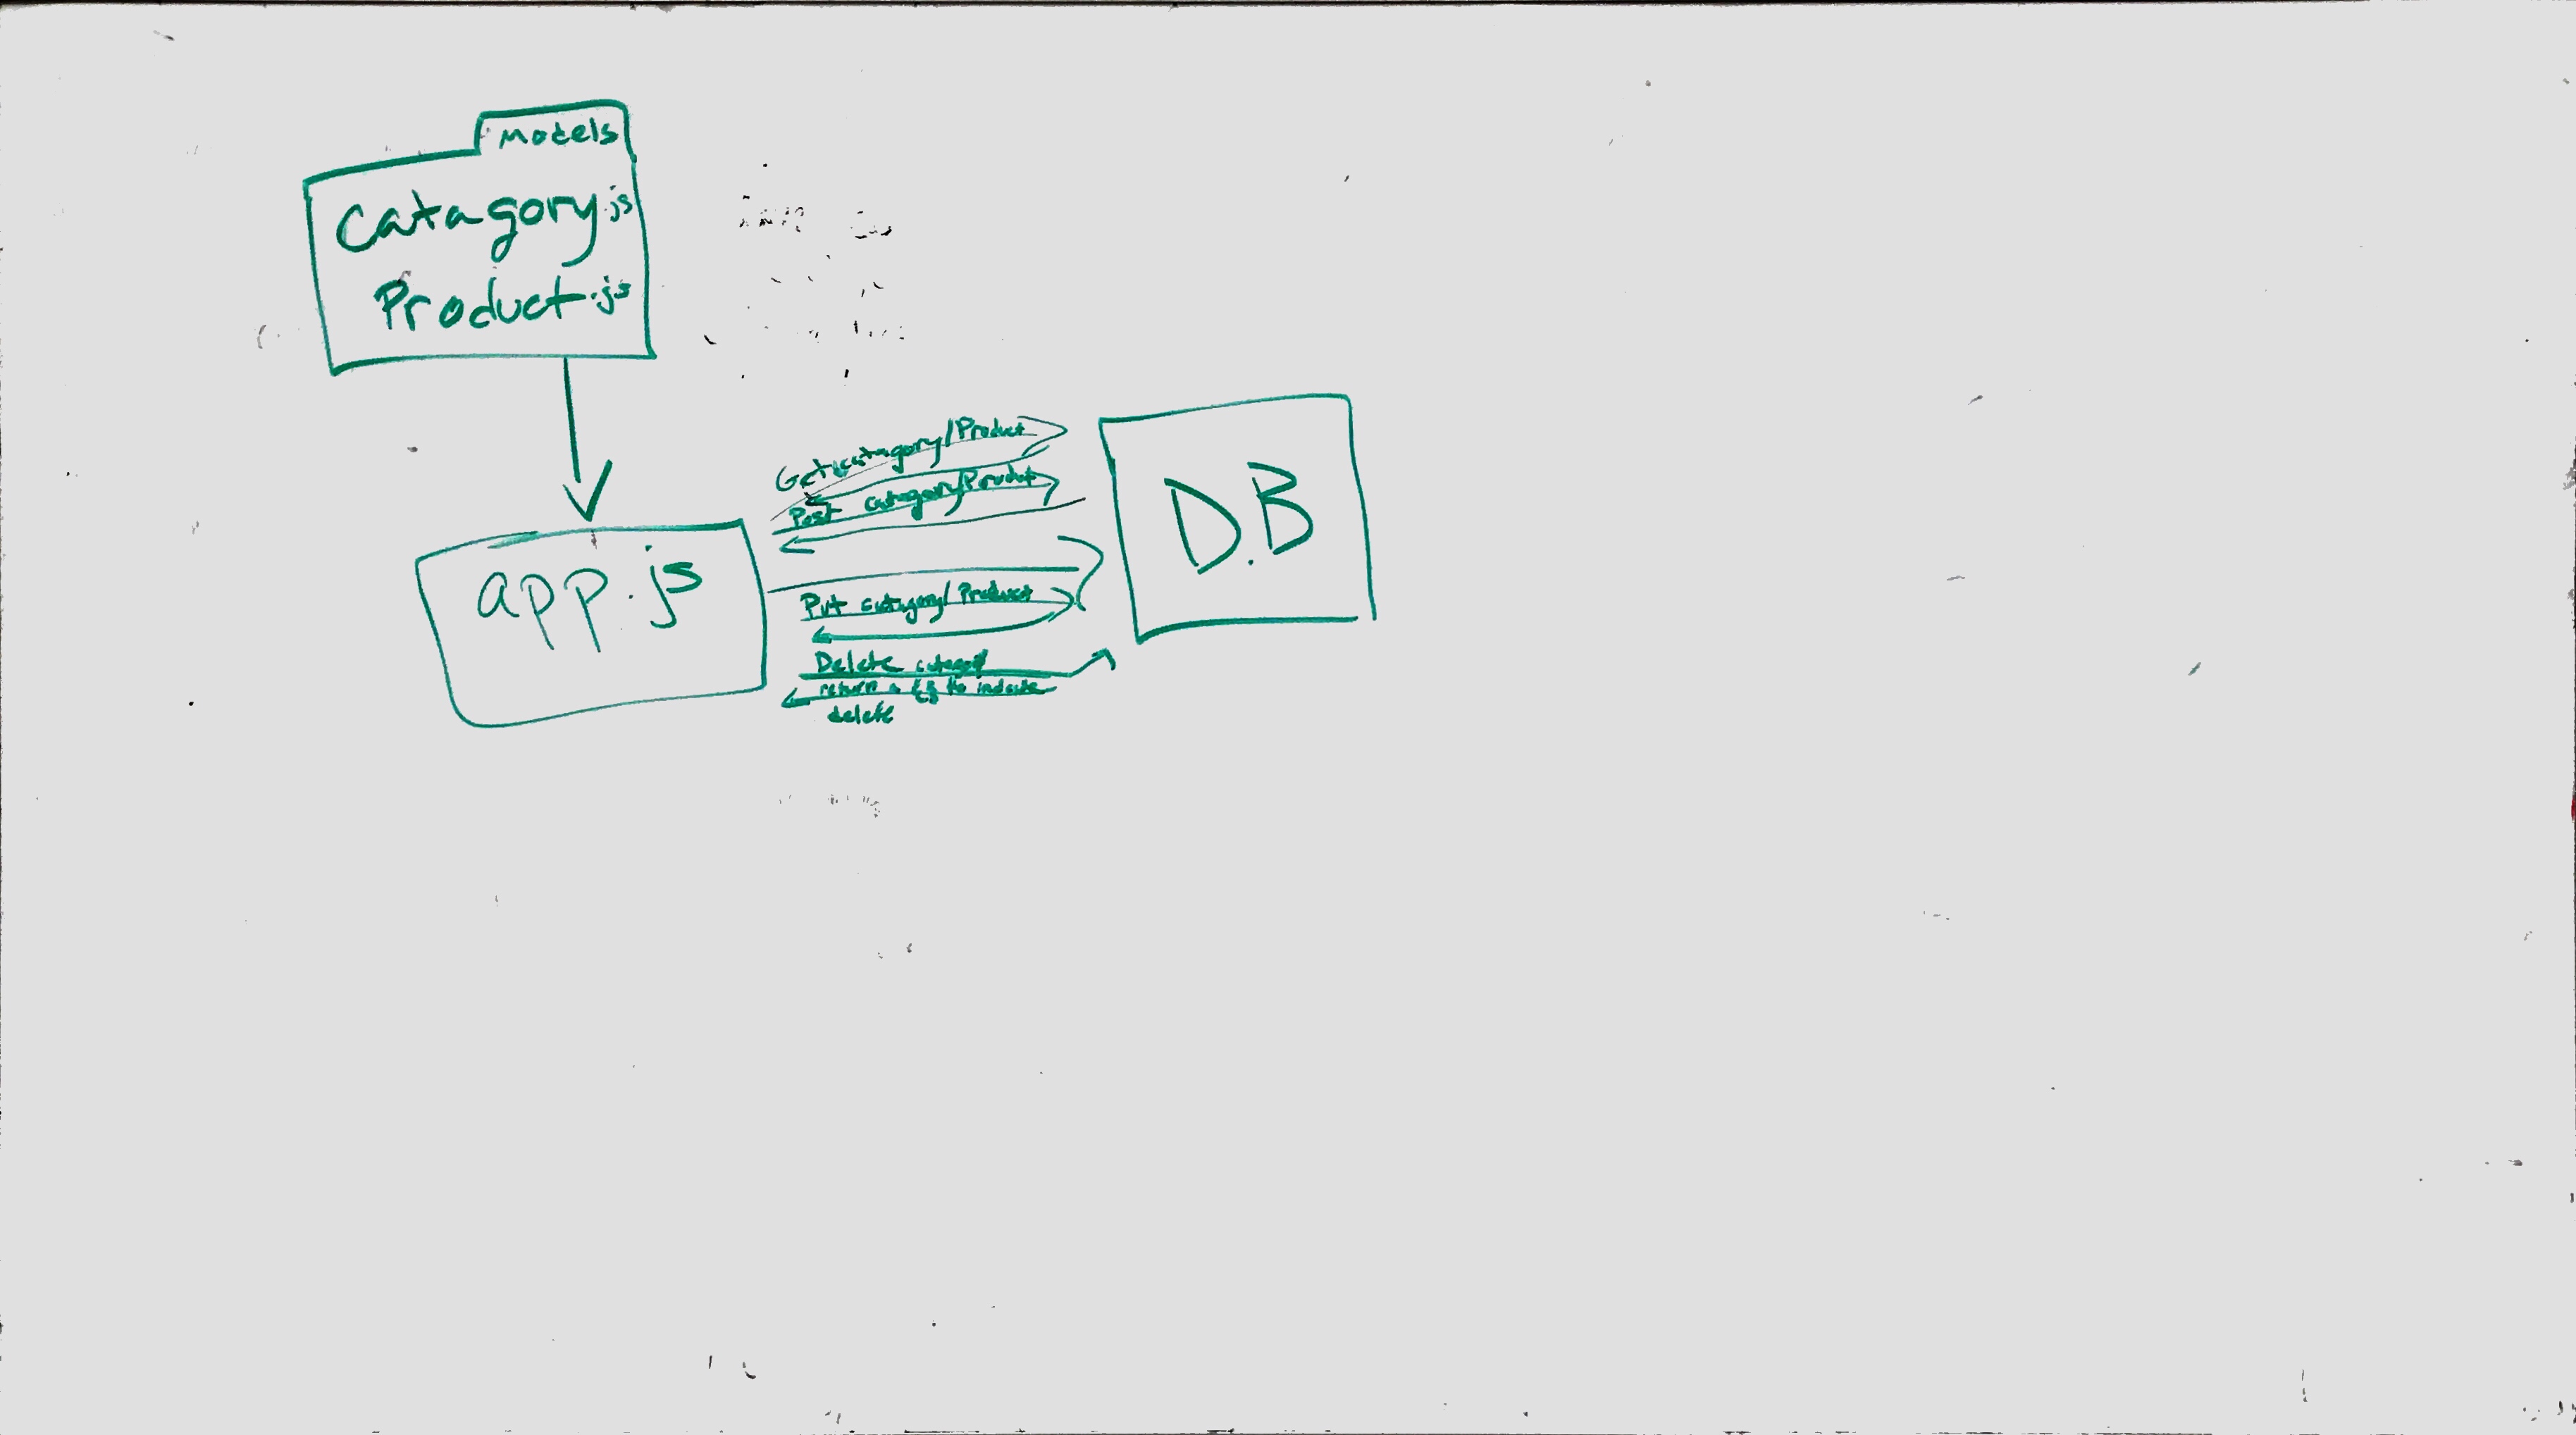 Models
Catagory.js
Product.js
Get catagory/Product
Post category/Product
D.B
app.js
Put category/Product
Delete category
return a {} to indicate
delete